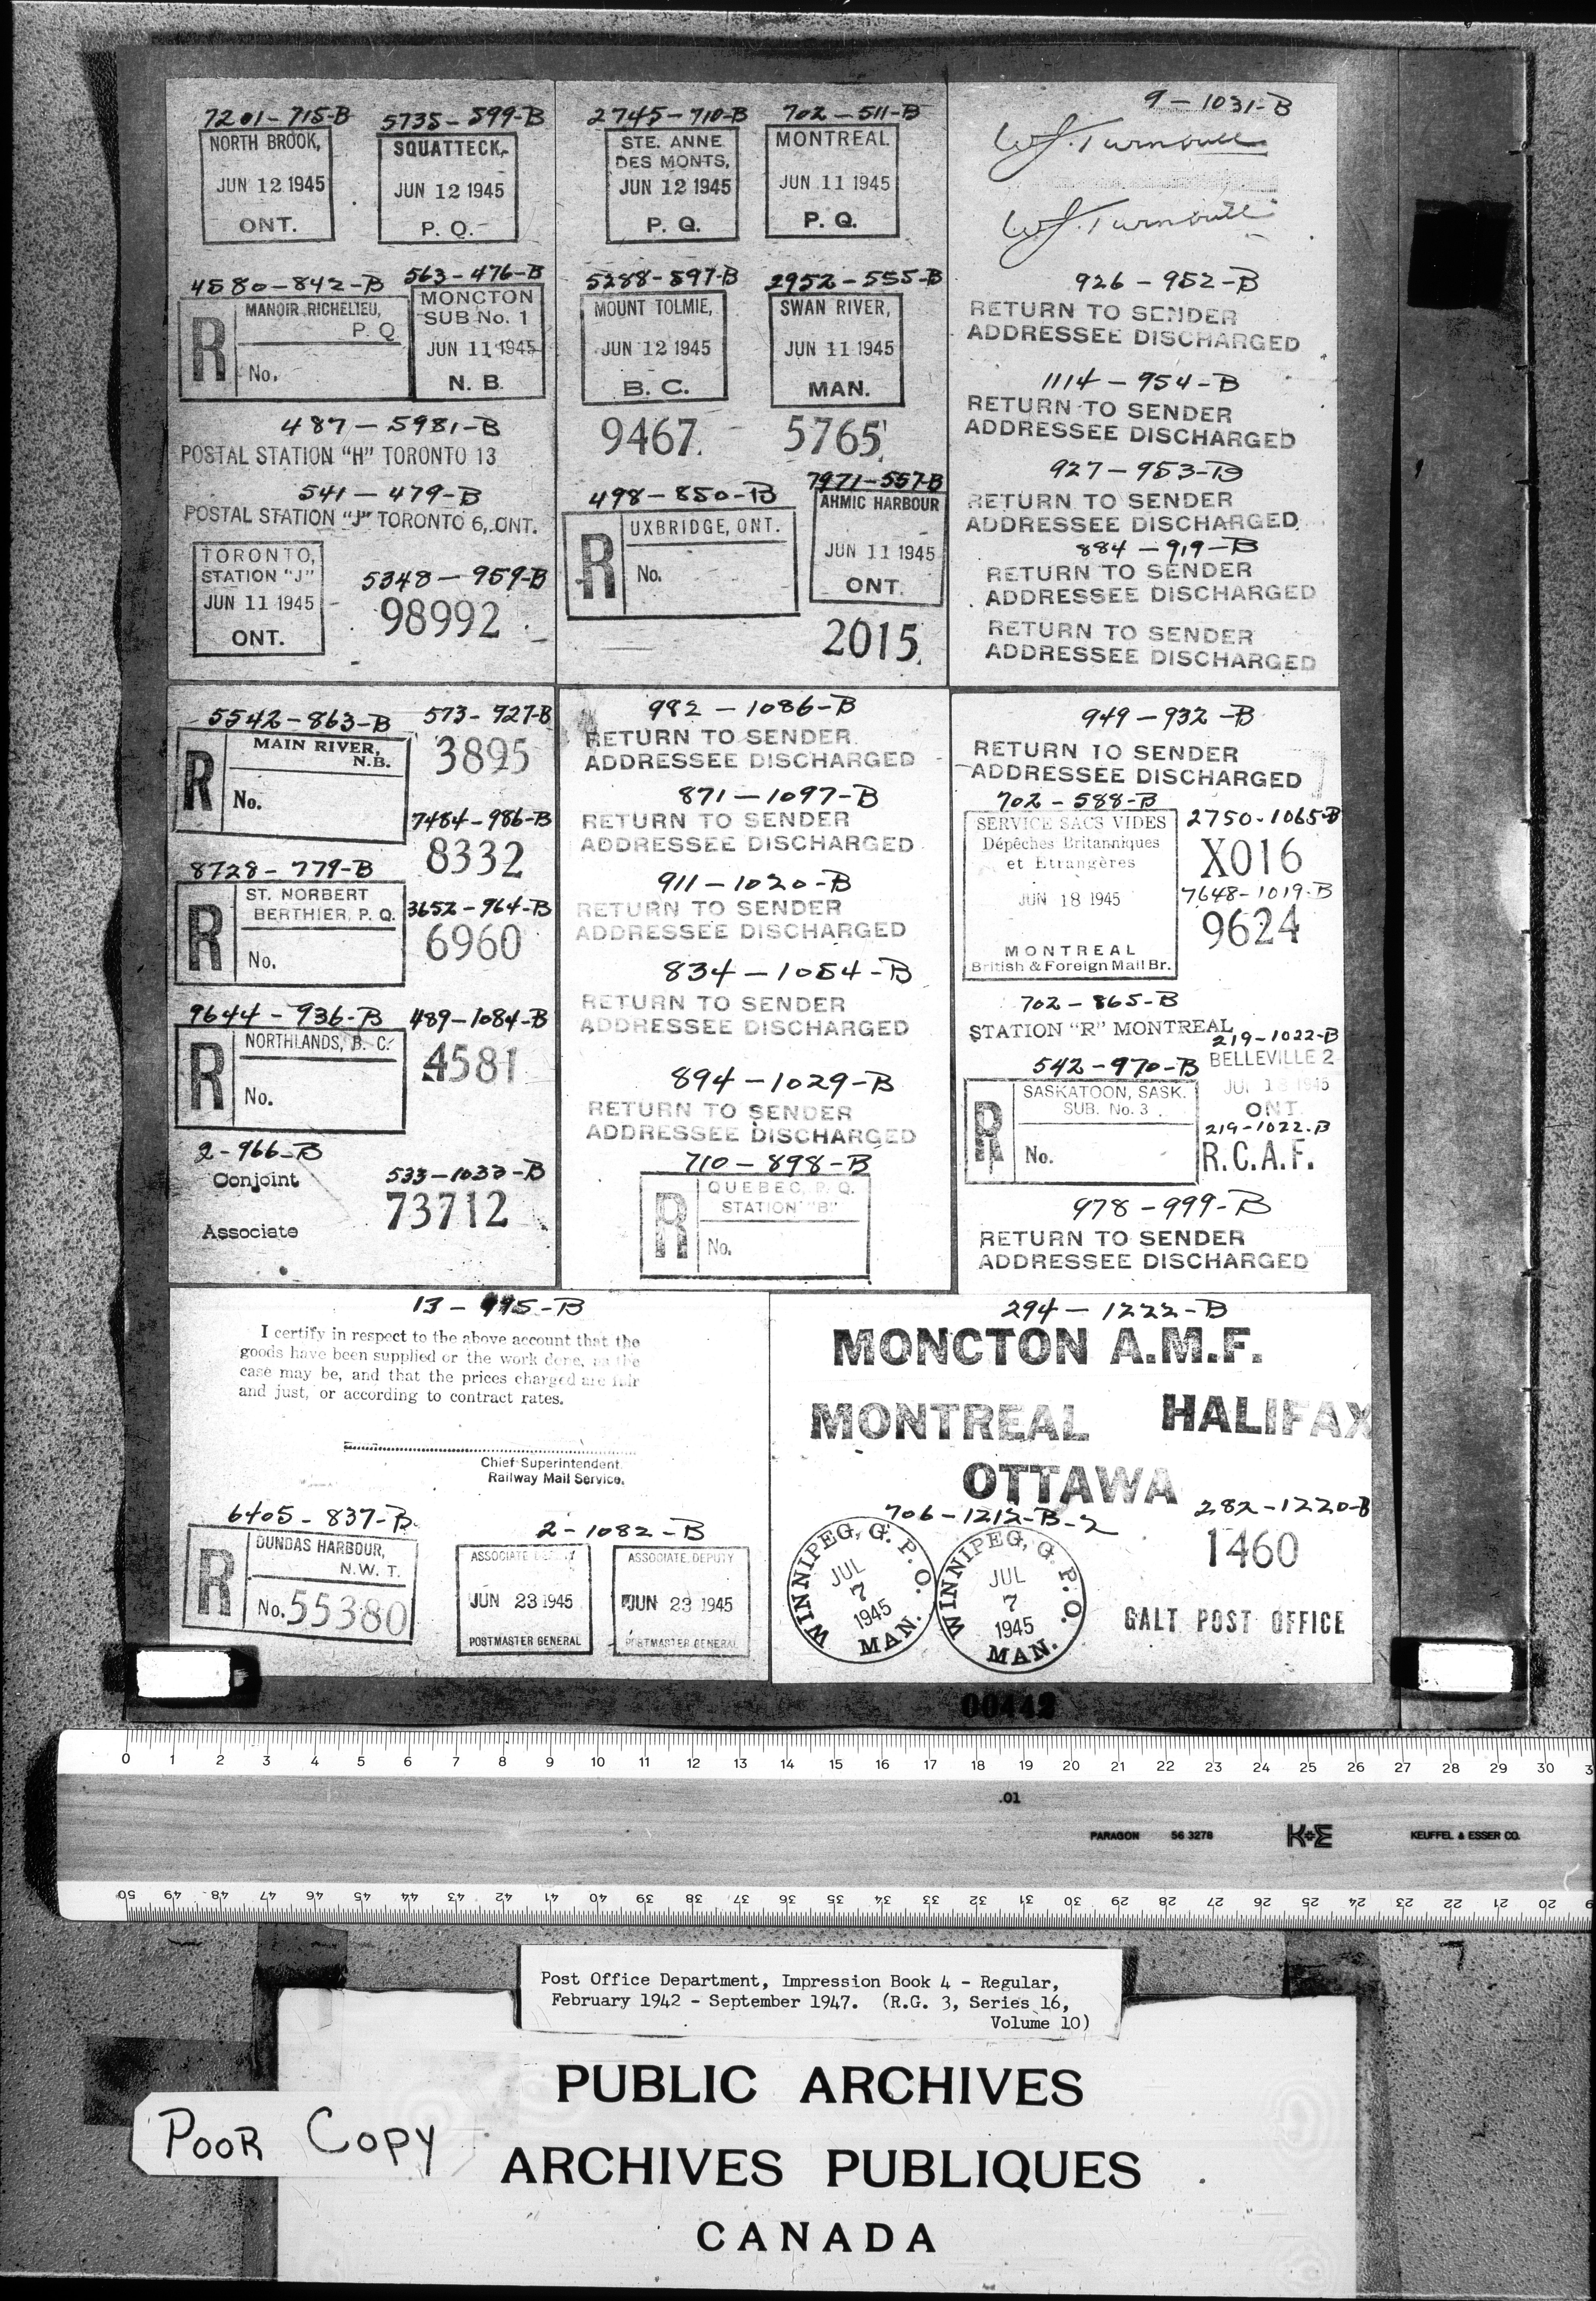 7201-715-B
NORTH BROOK,
JUN 12 1945
ONT.
5735-599-B
SQUATTECK,
JUN 12 1945
P. Q.
4580-842-B
R
MANOIR RICHELIEU,
P. Q
No.
563-476-B
MONCTON
SUB No. 1
JUN 11 1945
N. B.
487-5981-B
POSTAL STATION "H" TORONTO 13
541-479-B
POSTAL STATION "J" TORONTO 6, ONT.
TORONTO,
STATION "J"
JUN 11 1945
ONT.
5348-959-B
98992
2745-710-B
STE. ANNE
DES MONTS,
JUN 12 1945
P. Q.
702-511-B
MONTREAL
JUN 11 1945
P. Q.
5288-597-B
MOUNT TOLMIE,
JUN 12 1945
B. C.
9467
2952-555-B
SWAN RIVER,
JUN 11 1945
MAN.
5765
498-850-B
R
UXBRIDGE, ONT.
No.
7971-557-B
AHMIC HARBOUR
JUN 11 1945
ONT.
2015
9-1031-B
W.J. Turnbull
W.J. Turnbull
926-952-B
RETURN TO SENDER
ADDRESSEE DISCHARGED
1114-954-B
RETURN TO SENDER
ADDRESSEE DISCHARGED
927-953-B
RETURN TO SENDER
ADDRESSEE DISCHARGED
884-919-B
RETURN TO SENDER
ADDRESSEE DISCHARGED
RETURN TO SENDER
ADDRESSEE DISCHARGED
5542-863-B
R
MAIN RIVER,
N.B.
No.
573-927-B
3895
7484-986-B
8332
8728-779-B
R
ST. NORBERT
BERTHIER, P. Q.
No.
3652-964-B
6960
9644-936-B
R
NORTHLANDS, B. C.
No.
489-1084-B
4581
2-966-B
Conjoint
Associate
533-1033-B
73712
982-1086-B
RETURN TO SENDER
ADDRESSEE DISCHARGED
871-1097-B
RETURN TO SENDER
ADDRESSEE DISCHARGED
911-1020-B
RETURN TO SENDER
ADDRESSEE DISCHARGED
834-1054-B
RETURN TO SENDER
ADDRESSEE DISCHARGED
894-1029-B
RETURN TO SENDER
ADDRESSEE DISCHARGED
710-898-B
R
QUEBEC, P. Q.
STATION "B"
No.
949-932-B
RETURN TO SENDER
ADDRESSEE DISCHARGED
702-588-B
SERVICE SACS VIDES
Dépêches Britanniques
et Etrangères
JUN 18 1945
MONTREAL
British & Foreign Mail Br.
2750-1065-B
X016
7648-1019-B
9624
702-865-B
STATION "R" MONTREAL
219-1022-B
BELLEVILLE 2
JUN 13 1945
ONT.
219-1022-B
R.C.A.F.
542-970-B
R
SASKATOON, SASK.
SUB. No. 3
No.
978-999-B
RETURN TO SENDER
ADDRESSEE DISCHARGED
13-995-B
I certify in respect to the above account that the
goods have been supplied or the work done, as the
case may be, and that the prices charged are fair
and just, or according to contract rates.
Chief Superintendent
Railway Mail Service.
6405-837-B
R
DUNDAS HARBOUR,
N.W.T.
No. 55380
2-1082-B
ASSOCIATE DEPUTY
JUN 23 1945
POSTMASTER GENERAL
ASSOCIATE DEPUTY
JUN 23 1945
POSTMASTER GENERAL
294-1222-B
MONCTON A.M.F.
MONTREAL HALIFAX
OTTAWA
706-1212-B-2
WINNIPEG, G. P. O.
JUL
7
1945
MAN.
WINNIPEG, G. P. O.
JUL
7
1945
MAN.
282-1220-B
1460
GALT POST OFFICE
00442
0 1 2 3 4 5 6 7 8 9 10 11 12 13 14 15 16 17 18 19 20 21 22 23 24 25 26 27 28 29 30 3
.01
PARAGON 56 3278 K+E KEUFFEL & ESSER CO.
50 49 48 47 46 45 44 43 42 41 40 39 38 37 36 35 34 33 32 31 30 29 28 27 26 25 24 23 22 21 20
Post Office Department, Impression Book 4 - Regular,
February 1942 - September 1947. (R.G. 3, Series 16,
Volume 10)
PUBLIC ARCHIVES
POOR COPY
ARCHIVES PUBLIQUES
CANADA